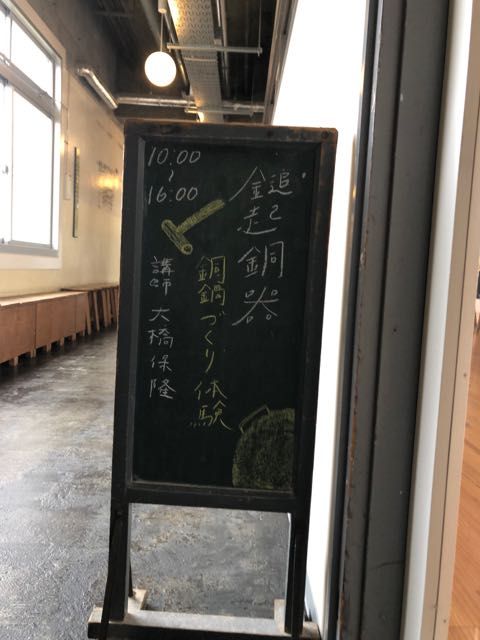 10:00
〜
16:00
鎚起銅器
銅鍋づくり体験
講師 大橋保隆